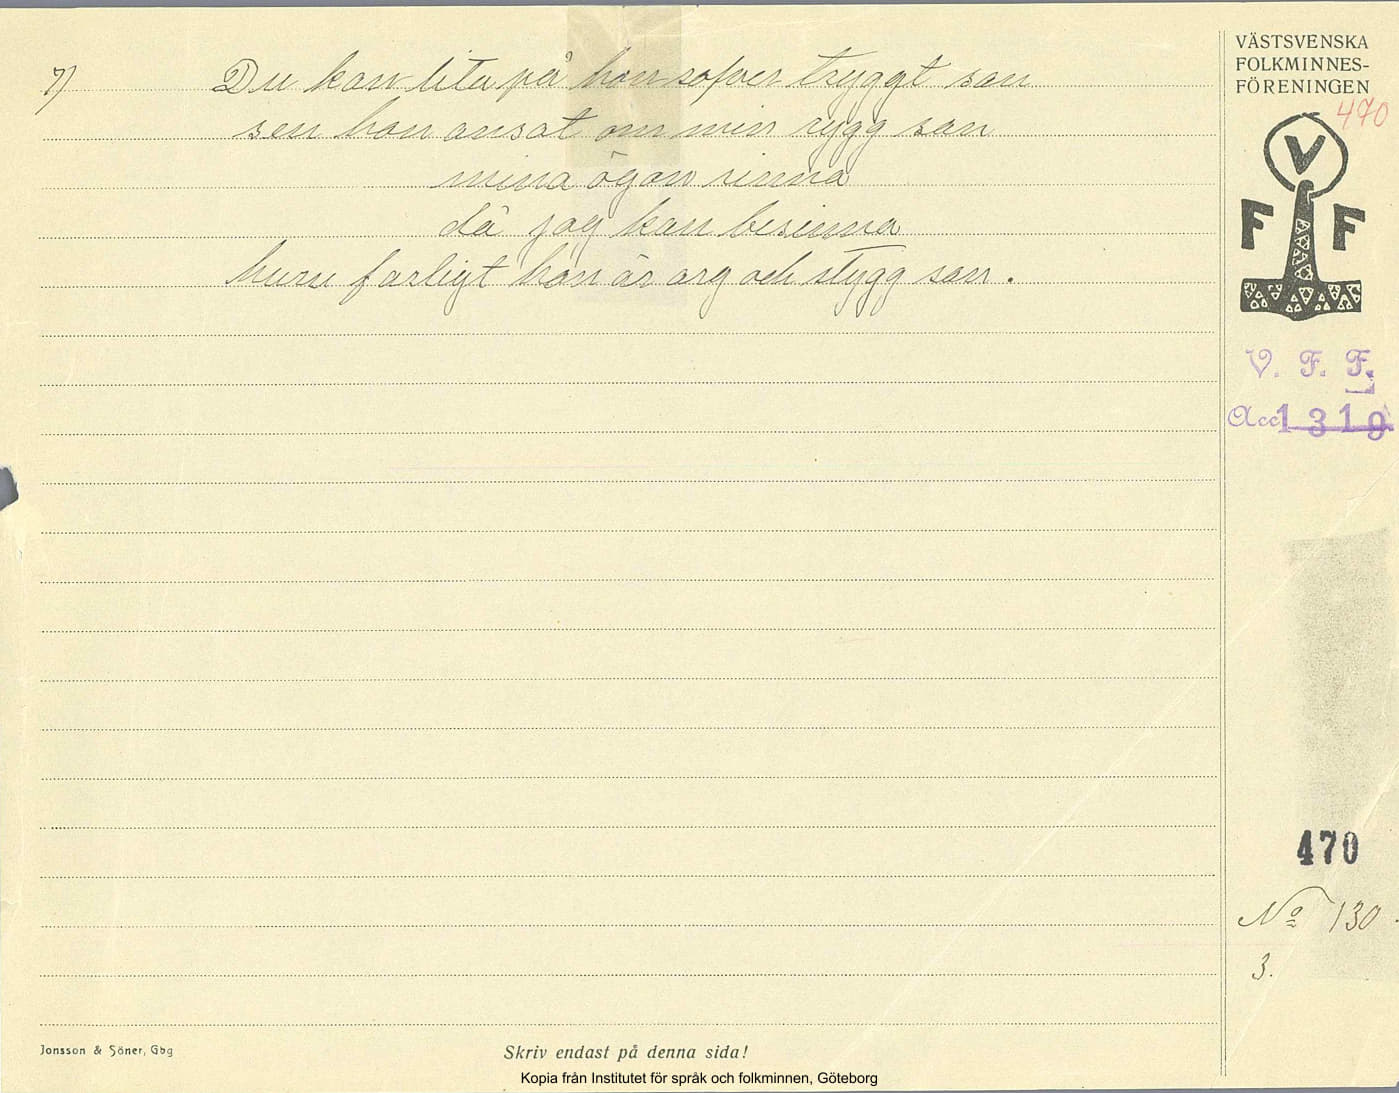 7) Du kan lita på hon sofver tryggt san
sen hon ansat om min rygg san
mina ögon rinna
då jag kan besinna
huru farligt hon är arg och stygg san.
VÄSTSVENSKA
FOLKMINNES-
FÖRENINGEN
470
V
F F
V. F. F.
Acc 1319
470
No 130.
3.
Jonsson & Söner, Gbg
Skriv endast på denna sida!
Kopia från Institutet för språk och folkminnen, Göteborg